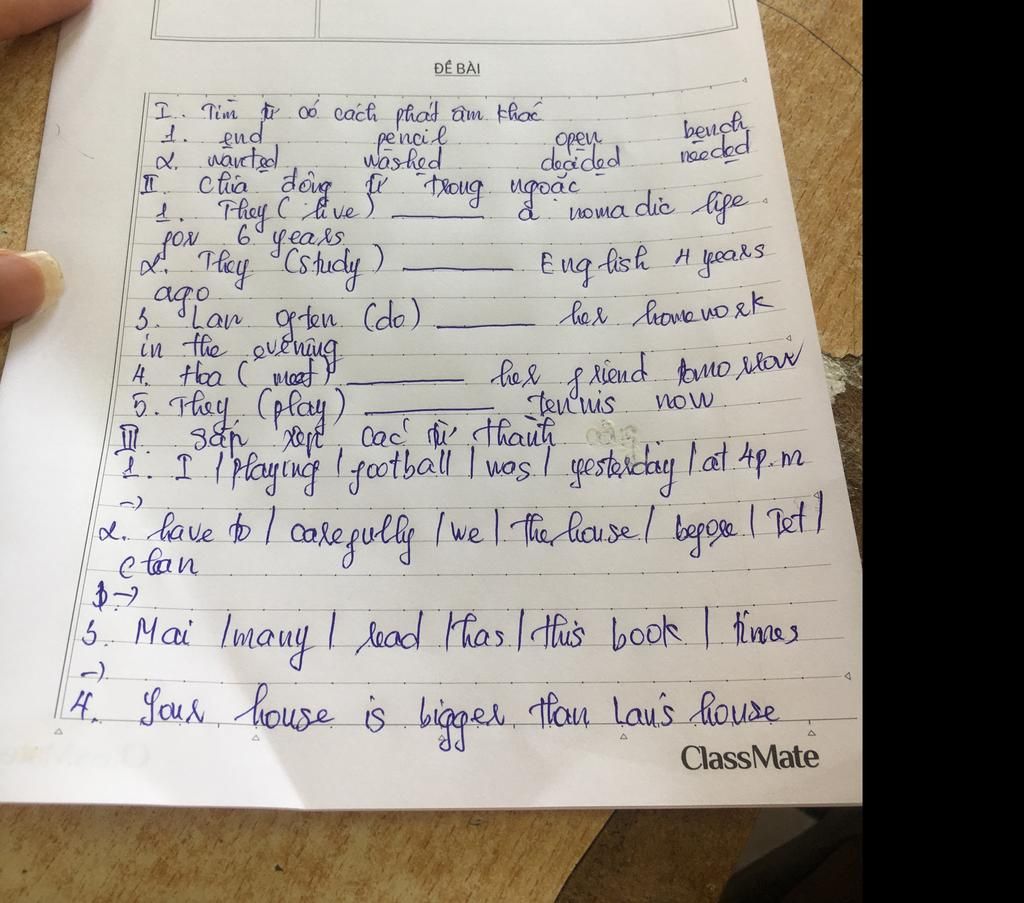 ĐỀ BÀI
I. Tìm từ có cách phát âm khác
1. end pencil open bench
2. wanted washed decided needed
II. Chia động từ trong ngoặc
1. They ( live ) ______ a nomadic life
for 6 years
2. They (study) ______ English 4 years
ago
3. Lan often (do) ______ her homework
in the evening
4. Hoa ( meet) ______ her friend tomorrow
5. They (play) ______ tennis now
III. sắp xếp các từ thành
1. I / playing / football / was / yesterday / at 4p.m
->
2. have to / carefully / we / the house / before / Tet /
clean
->
3. Mai / many / read / has / this book / times
->
4. Your house is bigger than Lan's house
ClassMate